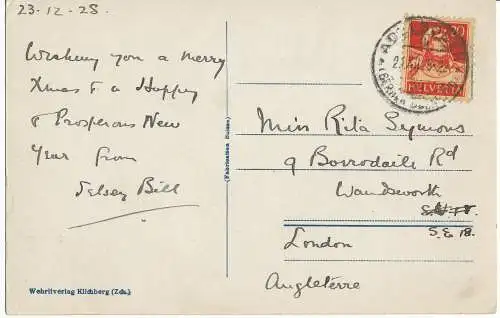 23-12-28.
Wishing you a merry
Xmas & a Happy
& Prosperous New
Year from
Selsey Bill
(Fabrication Suisse)
Wehrliverlag Kilchberg (Zch.)
20
HELVETIA
Miss Rita Seymons
9 Borrodaile Rd
Wandsworth
S.W.18.
S.E 18.
London
Angleterre